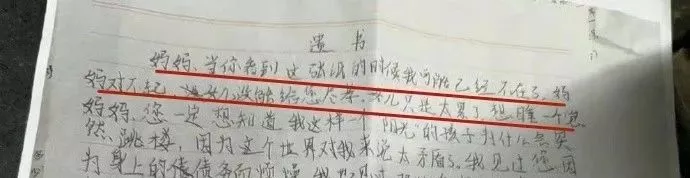 遗书
妈妈、当你看到这封信的时候我可能已经不在了,妈
妈对不起,女儿没能给您尽孝,女儿只是太累了想睡一个觉
妈妈、您一定想知道我这样一个“阳光”的孩子为什么会突
然跳楼,因为这个世界对我来说太矛盾了。我见过您因
为身上的债务而烦恼,我